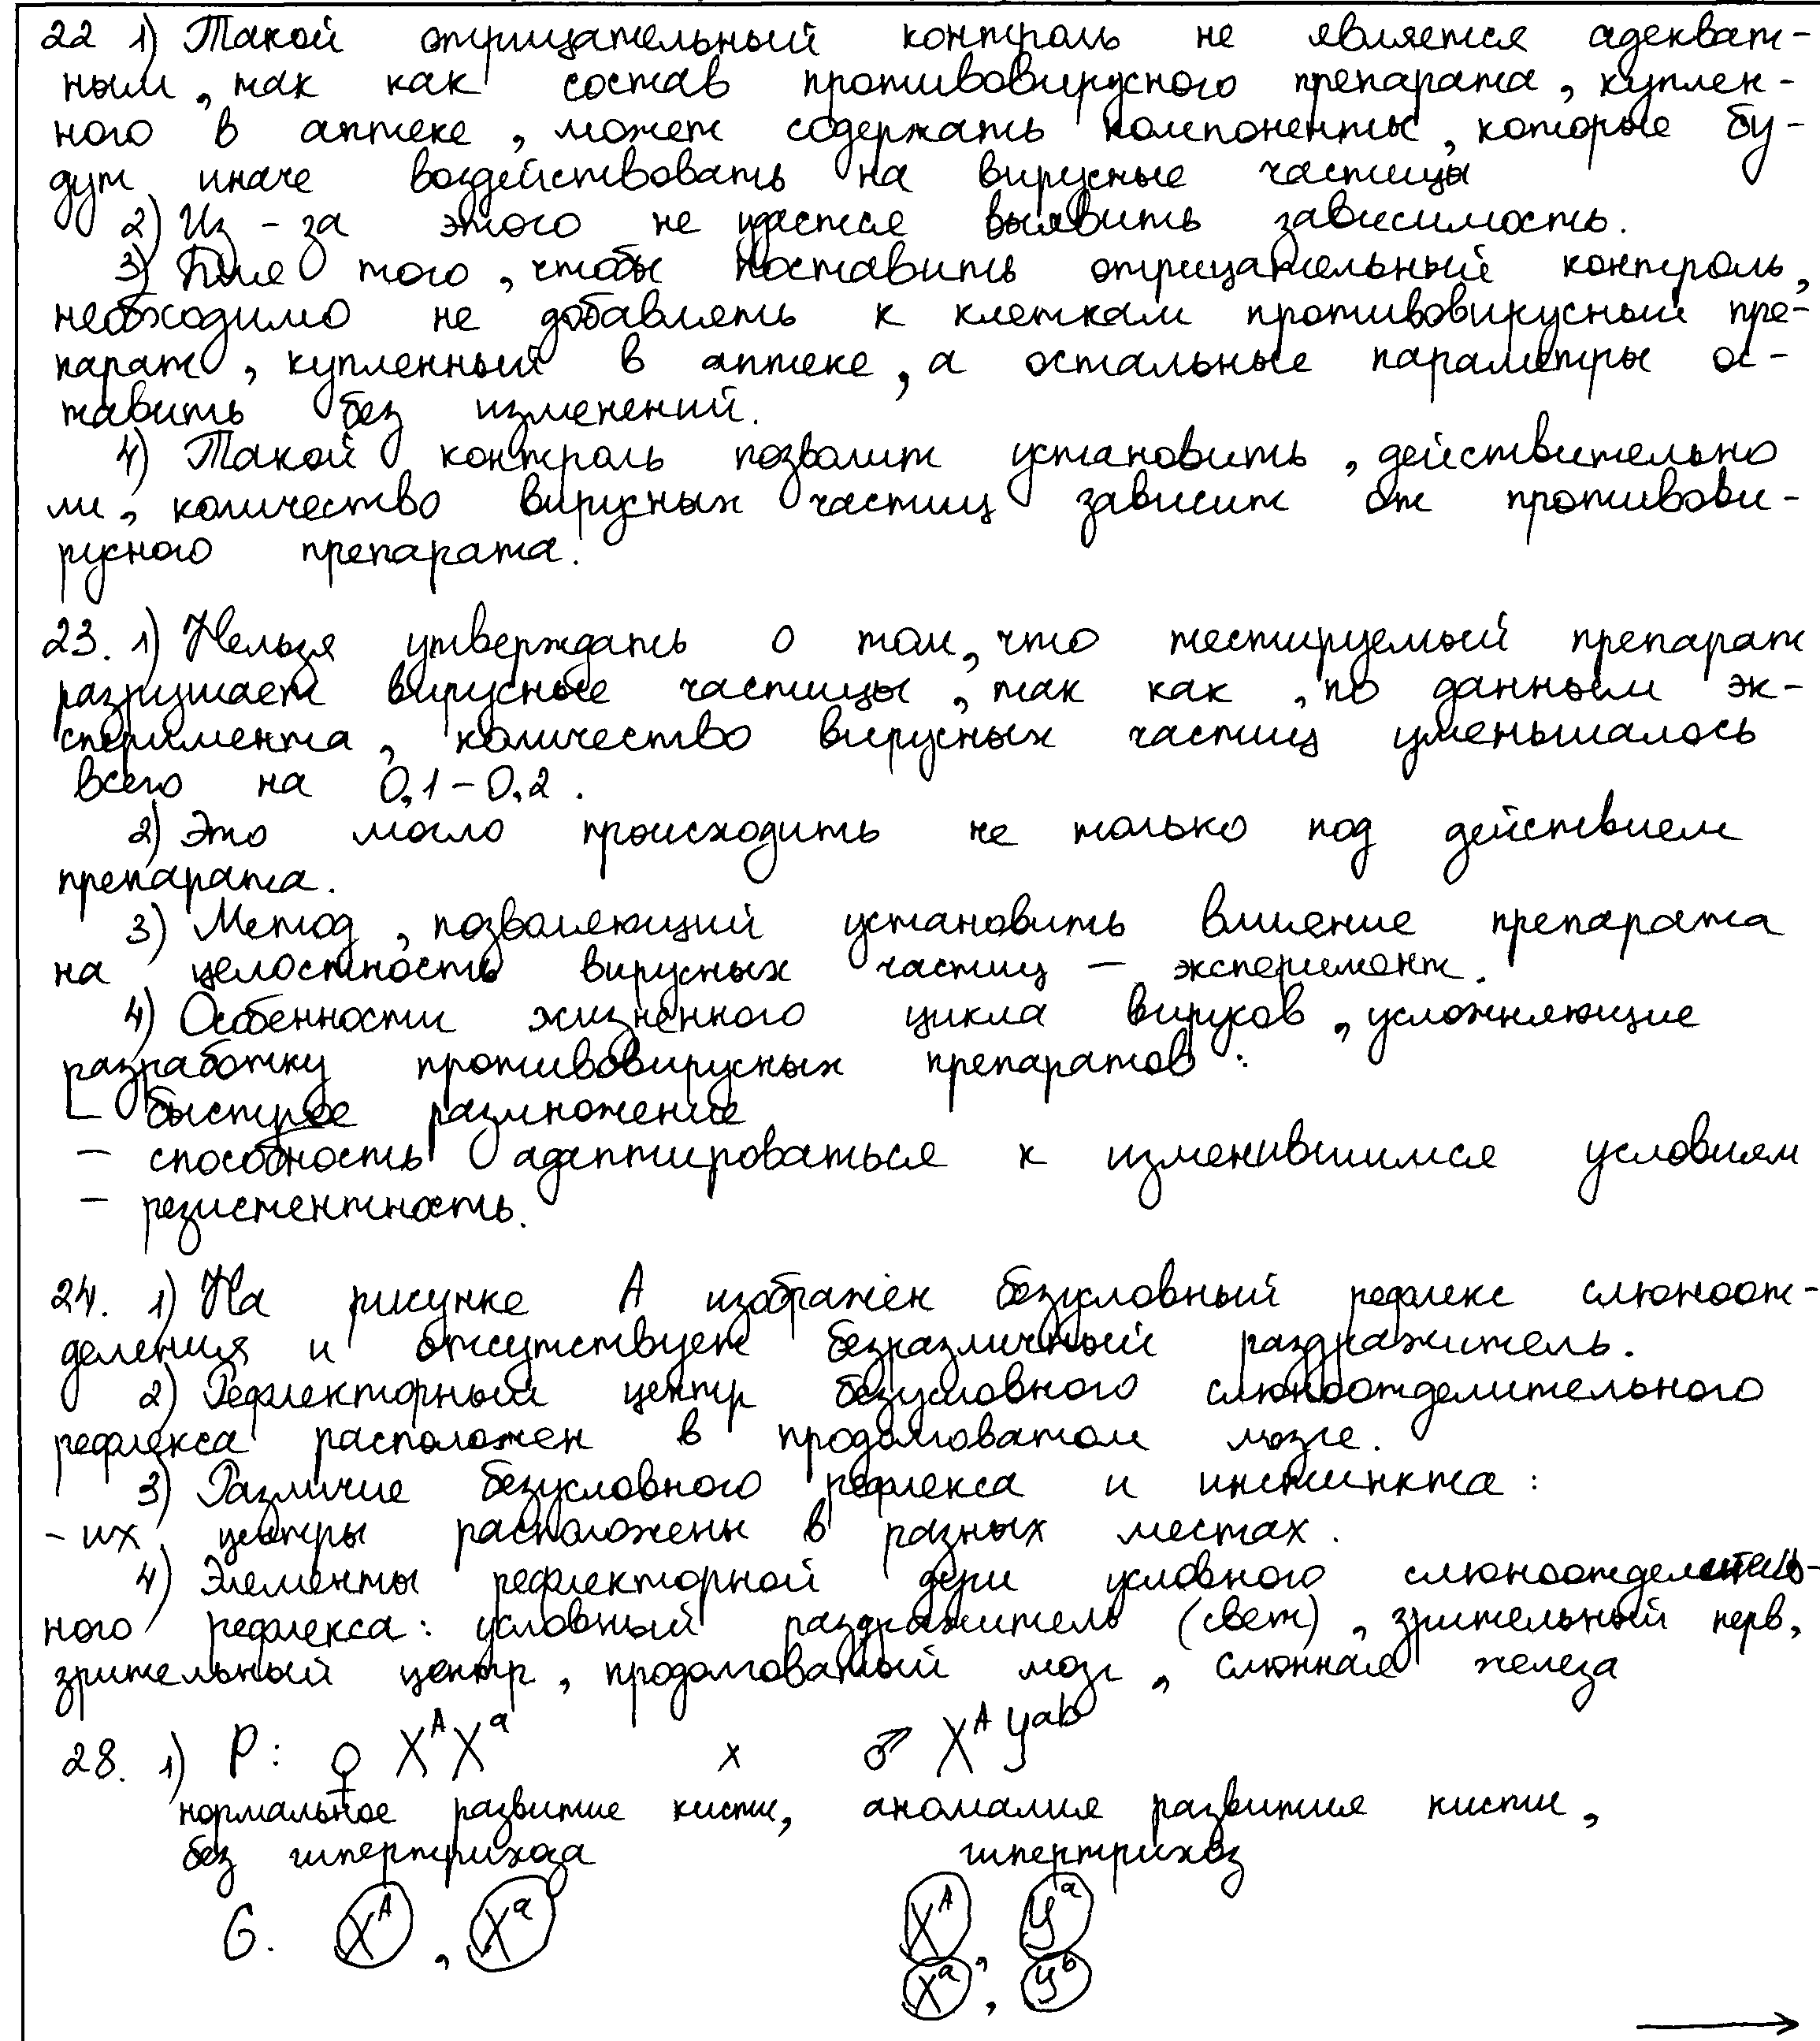 22 1) Такой отрицательный контроль не является адекват-
ным, так как состав противовирусного препарата, куплен-
ного в аптеке, может содержать компоненты, которые бу-
дут иначе воздействовать на вирусные частицы
2) Из-за этого не удастся выявить зависимость.
3) Для того, чтобы поставить отрицательный контроль,
необходимо не добавлять к клеткам противовирусный пре-
парат, купленный в аптеке, а остальные параметры ос-
тавить без изменений.
4) Такой контроль позволит установить, действительно
ли, количество вирусных частиц зависит от противови-
русного препарата.
23. 1) Нельзя утверждать о том, что тестируемый препарат
разрушает вирусные частицы, так как, по данным эк-
сперимента, количество вирусных частиц уменьшалось
всего на 0,1-0,2.
2) Это могло происходить не только под действием
препарата.
3) Метод, позволяющий установить влияние препарата
на целостность вирусных частиц – эксперимент.
4) Особенности жизненного цикла вирусов, усложняющие
разработку противовирусных препаратов:
– быстрое размножение
– способность адаптироваться к изменившимся условиям
– резистентность.
24. 1) На рисунке А изображён безусловный рефлекс слюноот-
деления и отсутствует безразличный раздражитель.
2) Рефлекторный центр безусловного слюноотделительного
рефлекса расположен в продолговатом мозге.
3) Различие безусловного рефлекса и инстинкта:
- их центры расположены в разных местах.
4) Элементы рефлекторной дуги условного слюноотделитель-
ного рефлекса: условный раздражитель (свет), зрительный нерв,
зрительный центр, продолговатый мозг, слюнная железа
28. 1) P: ♀ XᴬXᵃ x ♂ XᴬYᵃᵇ
нормальное развитие кисти, аномалия развития кисти,
без гипертрихоза гипертрихоз
G. Xᴬ, Xᵃ Xᴬ, Yᵃ
Xᵃ, Yᵇ
→